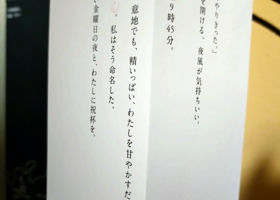 やりきった。」
を開ける。夜風が気持ちいい。
9時45分。
意地でも、精いっぱい、わたしを甘やかすだ
。私はそう命名した。
い金曜日の夜と、わたしに祝杯を。